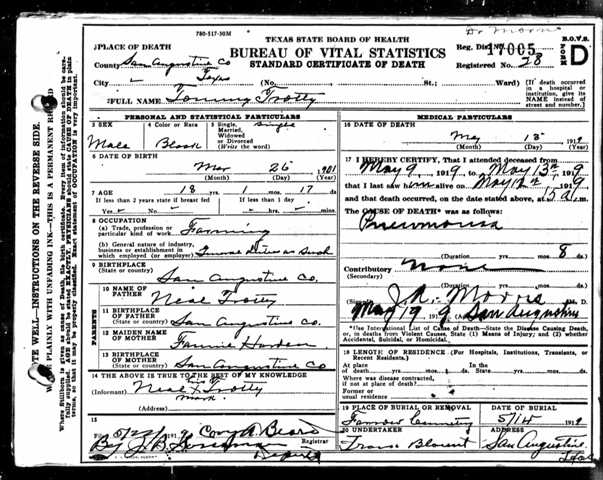 780-517-30M
Dr Morris
TEXAS STATE BOARD OF HEALTH
BUREAU OF VITAL STATISTICS
STANDARD CERTIFICATE OF DEATH
B.O.V.S.
FORM D
Reg. Dis. No. 17005
Registered No. 28
PLACE OF DEATH
County San Augustine Co
Texas
City (No. St.; Ward)
(If death occurred in a hospital or institution, give its NAME instead of street and number.)
FULL NAME Tommy Trotty
PERSONAL AND STATISTICAL PARTICULARS
3 SEX Male
4 Color or Race Black
5 Single, Married, Widowed or Divorced (Write the word) Single
6 DATE OF BIRTH
Mar 26 1901
(Month) (Day)
7 AGE 18 1 17 ds.
If less than 2 years state if breast fed
If less than 1 day
Yes No hrs. min.
8 OCCUPATION
(a) Trade, profession or particular kind of work Farming
(b) General nature of industry, business or establishment in which employed (or employer)
9 BIRTHPLACE
(State or country) San Augustine Co.
PARENTS
10 NAME OF FATHER Neal Trotty
11 BIRTHPLACE OF FATHER
(State or country) San Augustine Co.
12 MAIDEN NAME OF MOTHER Fannie Harden
13 BIRTHPLACE OF MOTHER
(State or country) San Augustine Co
14 THE ABOVE IS TRUE TO THE BEST OF MY KNOWLEDGE
(Informant) Neal his X mark Trotty
(Address)
15
Registrar
Deputy
MEDICAL PARTICULARS
16 DATE OF DEATH
May 13 1919
(Month) (Day)
17 I HEREBY CERTIFY, That I attended deceased from
May 9 1919 to May 13th 1919
that I last saw him alive on May 12th 1919
and that death occurred, on the date stated above, at 5 a.m.
The CAUSE OF DEATH* was as follows:
Pneumonia
(Duration) yrs. mos. 8 ds.
Contributory None
(Secondary)
(Duration) yrs. mos. ds.
(Signed) J.A. Morris M. D.
May 19 1919 San Augustine
*Use International List of Cause of Death—State the Disease Causing Death, or, in deaths from Violent Causes, State (1) Means of Injury; and (2) whether Accidental, Suicidal, or Homicidal.
18 LENGTH OF RESIDENCE (For Hospitals, Institutions, Transients, or Recent Residents.)
At place of death yrs. mos. ds. In the State yrs. mos. ds.
Where was disease contracted, if not at place of death?
Former or usual residence
19 PLACE OF BURIAL OR REMOVAL
DATE OF BURIAL
Cemetery 5/14 1919
20 UNDERTAKER
ADDRESS
Blount San Augustine
Texas